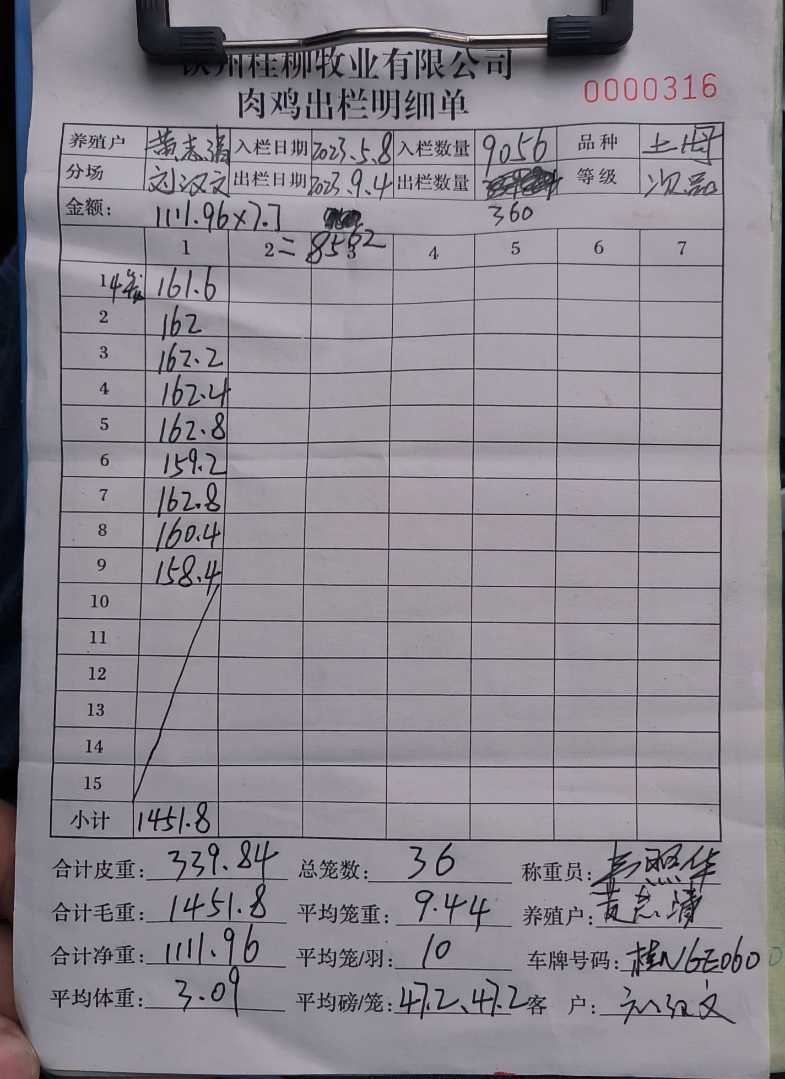 钦州桂柳牧业有限公司
肉鸡出栏明细单 0000316
养殖户 黄志清 入栏日期 2023.5.8 入栏数量 9056 品种 土
分场 刘汉文 出栏日期 2023.9.4 出栏数量 等级 次品
金额: 1111.96×7.7 360
= 8562
1 2 3 4 5 6 7
1 4笼 161.6
2 162
3 162.2
4 162.4
5 162.8
6 159.2
7 162.8
8 160.4
9 158.4
10
11
12
13
14
15
小计 1451.8
合计皮重: 339.84 总笼数: 36 称重员: 照华
合计毛重: 1451.8 平均笼重: 9.44 养殖户: 黄志清
合计净重: 1111.96 平均笼/羽: 10 车牌号码: 桂NGE060
平均体重: 3.09 平均磅/笼: 47.2、47.2 客 户: 刘汉文